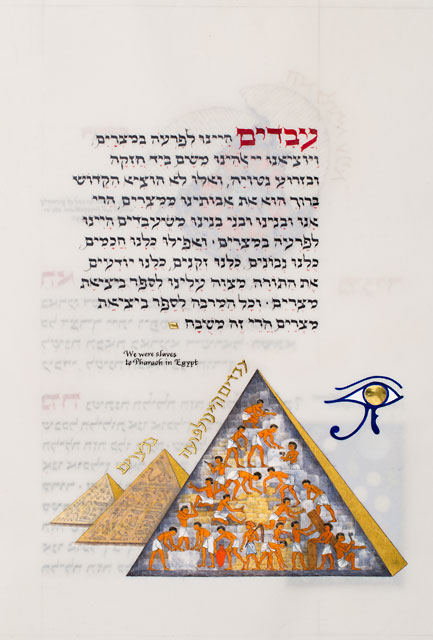 עבדים היינו לפרעה במצרים,
ויוציאנו יי אלהינו משם ביד חזקה
ובזרוע נטויה, ואלו לא הוציא הקדוש
ברוך הוא את אבותינו ממצרים, הרי
אנו ובנינו ובני בנינו משעבדים היינו
לפרעה במצרים · ואפילו כלנו חכמים,
כלנו נבונים, כלנו זקנים, כלנו יודעים
את התורה, מצוה עלינו לספר ביציאת
מצרים · וכל המרבה לספר ביציאת
מצרים הרי זה משבח
We were slaves
to Pharaoh in Egypt
עבדים היינו לפרעה
במצרים